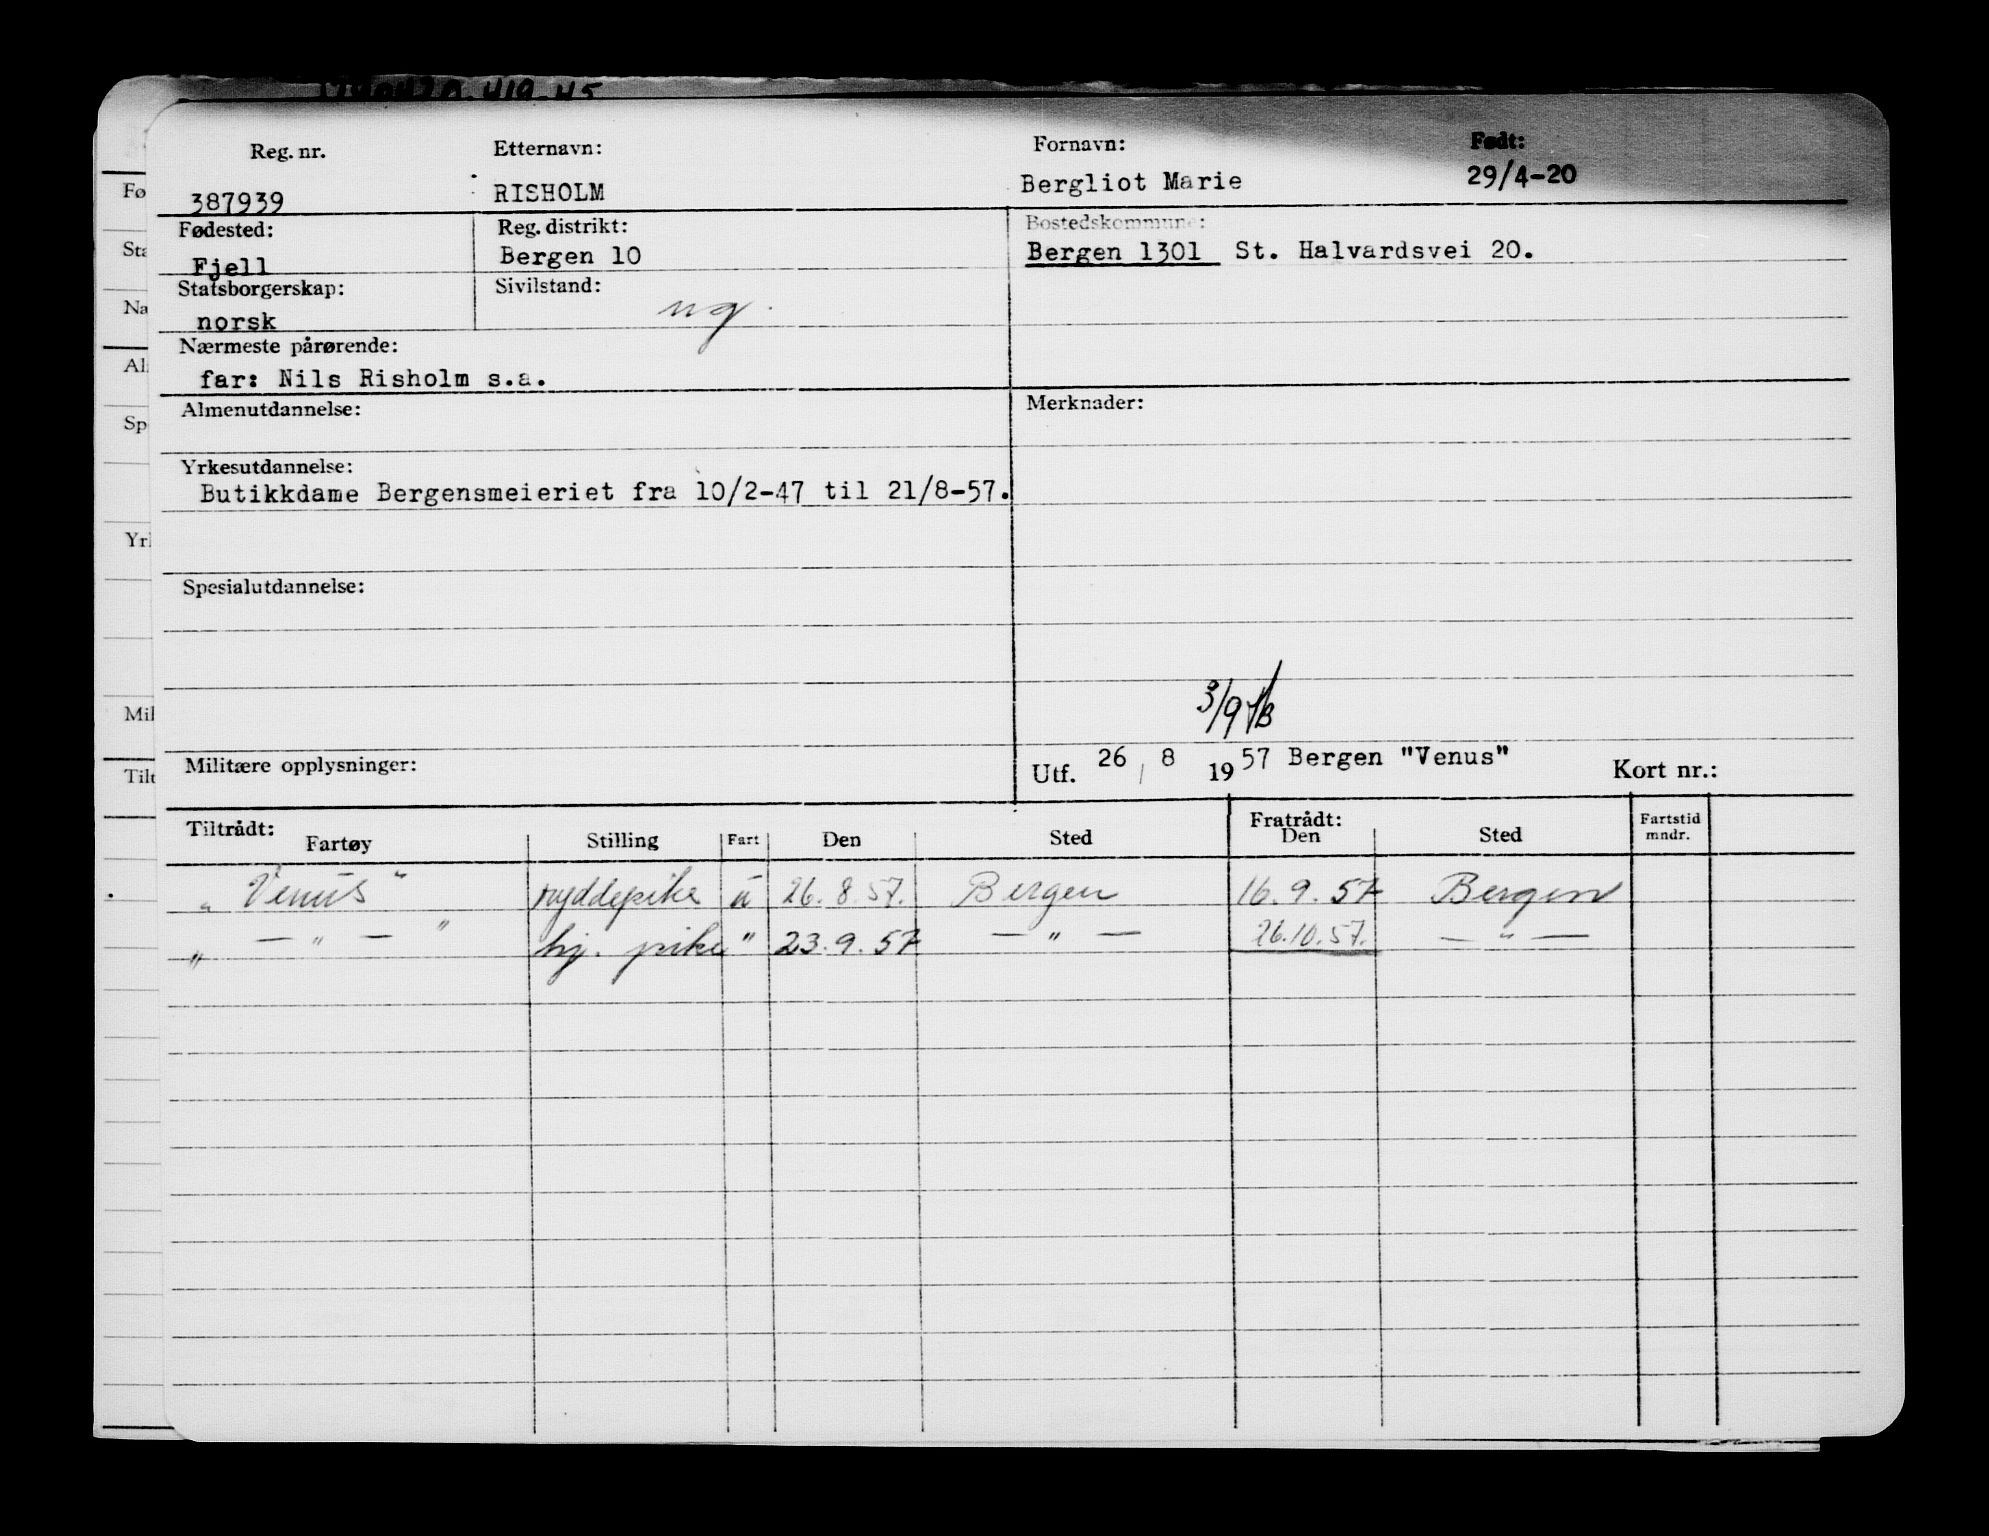 Reg. nr. Etternavn: Fornavn: Født:
387939 RISHOLM Bergliot Marie 29/4-20
Fødested: Reg. distrikt: Bostedskommune:
Fjell Bergen 10 Bergen 1301 St. Halvardsvei 20.
Statsborgerskap: Sivilstand:
norsk ug.
Nærmeste pårørende:
far: Nils Risholm s.a.
Almenutdannelse: Merknader:
Yrkesutdannelse:
Butikkdame Bergensmeieriet fra 10/2-47 til 21/8-57.
Spesialutdannelse:
3/9
Militære opplysninger: Utf. 26 / 8 19 57 Bergen "Venus" Kort nr.:
Tiltrådt: Fratrådt: Fartstid
Fartøy Stilling Fart Den Sted Den Sted mndr.
"Venus" ryddepike u 26.8.57. Bergen 16.9.57 Bergen
" — " — " hj. pike " 23.9.57 — " — 26.10.57. — " —
Fø
Sta
Na
Al
Sp
Yrl
Mil
Tilt